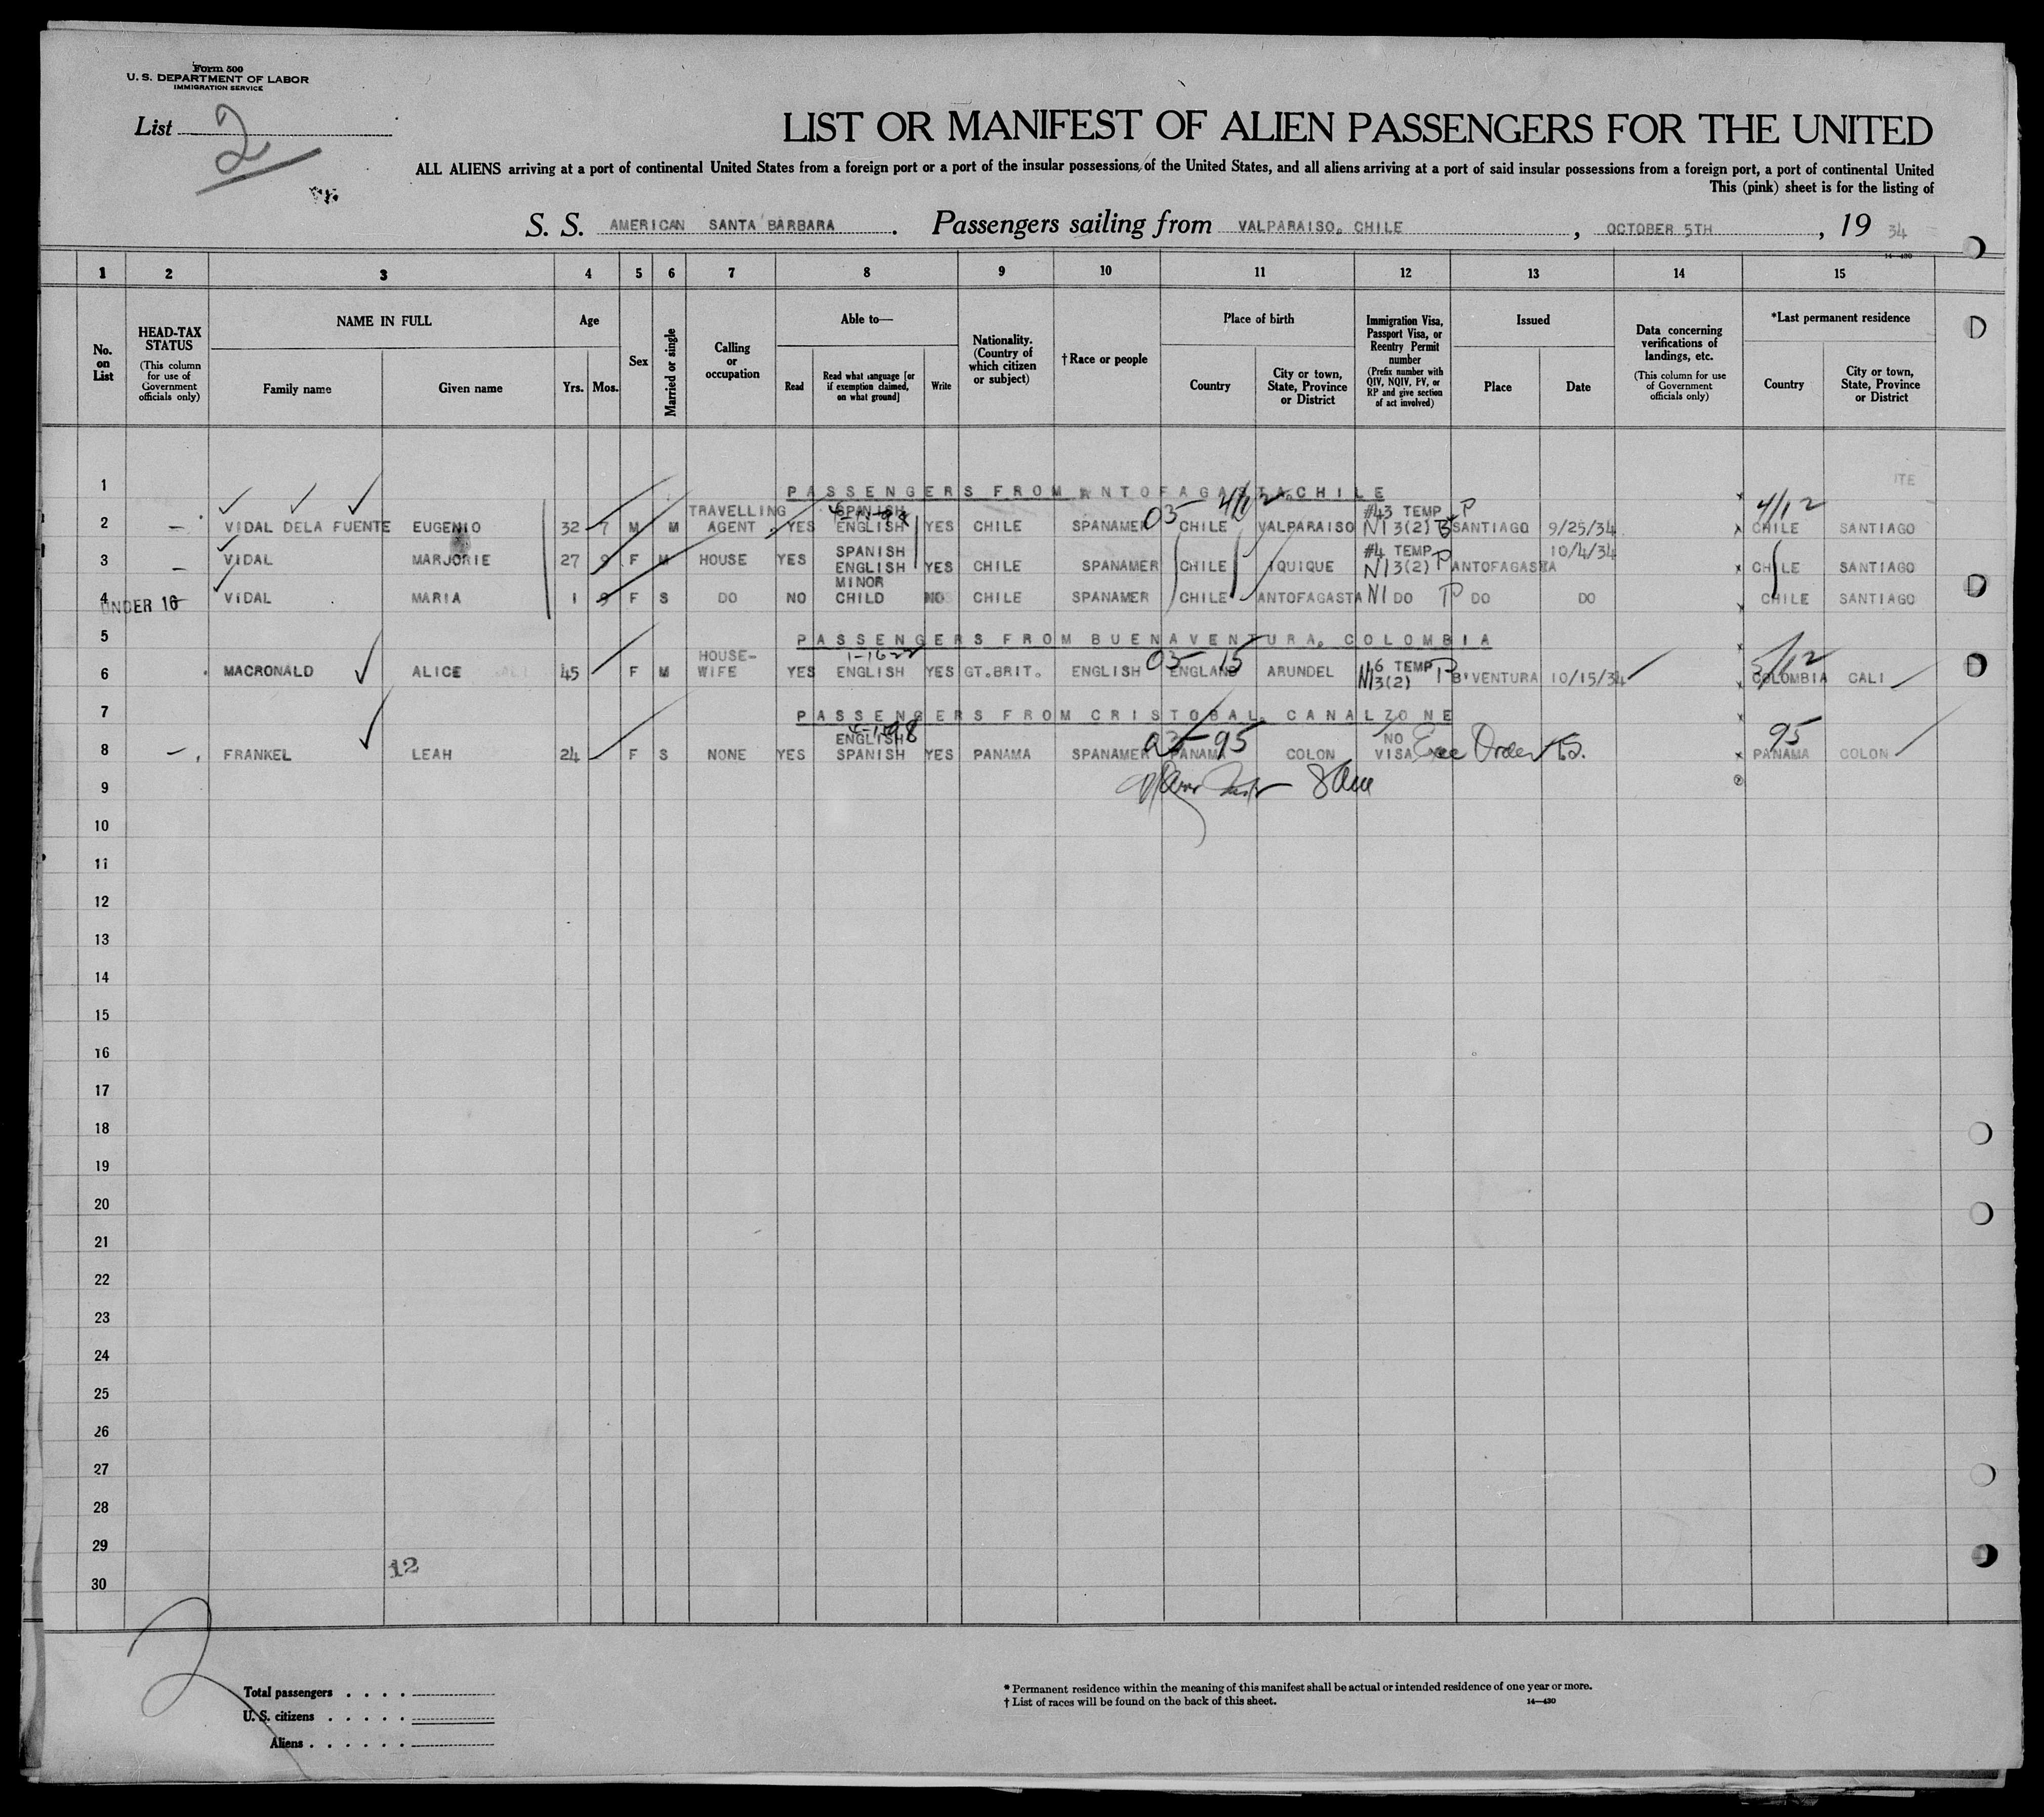 Form 500
U. S. DEPARTMENT OF LABOR
IMMIGRATION SERVICE
List 2
LIST OR MANIFEST OF ALIEN PASSENGERS FOR THE UNITED
ALL ALIENS arriving at a port of continental United States from a foreign port or a port of the insular possessions of the United States, and all aliens arriving at a port of said insular possessions from a foreign port, a port of continental United
This (pink) sheet is for the listing of
S. S. AMERICAN SANTA BARBARA. Passengers sailing from VALPARAISO, CHILE, OCTOBER 5TH, 19 34
14-430
1 2 3 4 5 6 7 8 9 10 11 12 13 14 15
No. on List
HEAD-TAX STATUS (This column for use of Government officials only)
NAME IN FULL
Family name Given name
Age
Yrs. Mos.
Sex
Married or single
Calling or occupation
Able to—
Read Read what language [or if exemption claimed, on what ground] Write
Nationality. (Country of which citizen or subject)
†Race or people
Place of birth
Country City or town, State, Province or District
Immigration Visa, Passport Visa, or Reentry Permit number (Prefix number with QIV, NQIV, PV, or RP and give section of act involved)
Issued
Place Date
Data concerning verifications of landings, etc. (This column for use of Government officials only)
*Last permanent residence
Country City or town, State, Province or District
1 PASSENGERS FROM ANTOFAGASTA, CHILE ITE
03 4/12 4/12
2 VIDAL DELA FUENTE EUGENIO 32 7 M M TRAVELLING AGENT YES SPANISH ENGLISH YES CHILE SPANAMER CHILE VALPARAISO #43 TEMP NI 3(2) P SANTIAGO 9/25/34 CHILE SANTIAGO
3 VIDAL MARJORIE 27 9 F M HOUSE YES SPANISH ENGLISH YES CHILE SPANAMER CHILE IQUIQUE #4 TEMP NI 3(2) P ANTOFAGASTA 10/4/34 CHILE SANTIAGO
4 UNDER 16 VIDAL MARIA 1 9 F S DO NO MINOR CHILD NO CHILE SPANAMER CHILE ANTOFAGASTA NI DO P DO DO CHILE SANTIAGO
5 PASSENGERS FROM BUENAVENTURA, COLOMBIA
1-16 22 03 15 5/12
6 MACRONALD ALICE 45 F M HOUSE-WIFE YES ENGLISH YES GT.BRIT. ENGLISH ENGLAND ARUNDEL #6 TEMP NI 3(2) P B'VENTURA 10/15/34 COLOMBIA CALI
7 PASSENGERS FROM CRISTOBAL, CANAL ZONE
95 95
8 FRANKEL LEAH 24 F S NONE YES ENGLISH SPANISH YES PANAMA SPANAMER PANAMA COLON NO VISA Exec Order PANAMA COLON
9
10
11
12
13
14
15
16
17
18
19
20
21
22
23
24
25
26
27
28
29
12
30
2
Total passengers
U. S. citizens
Aliens
* Permanent residence within the meaning of this manifest shall be actual or intended residence of one year or more.
† List of races will be found on the back of this sheet. 14-430